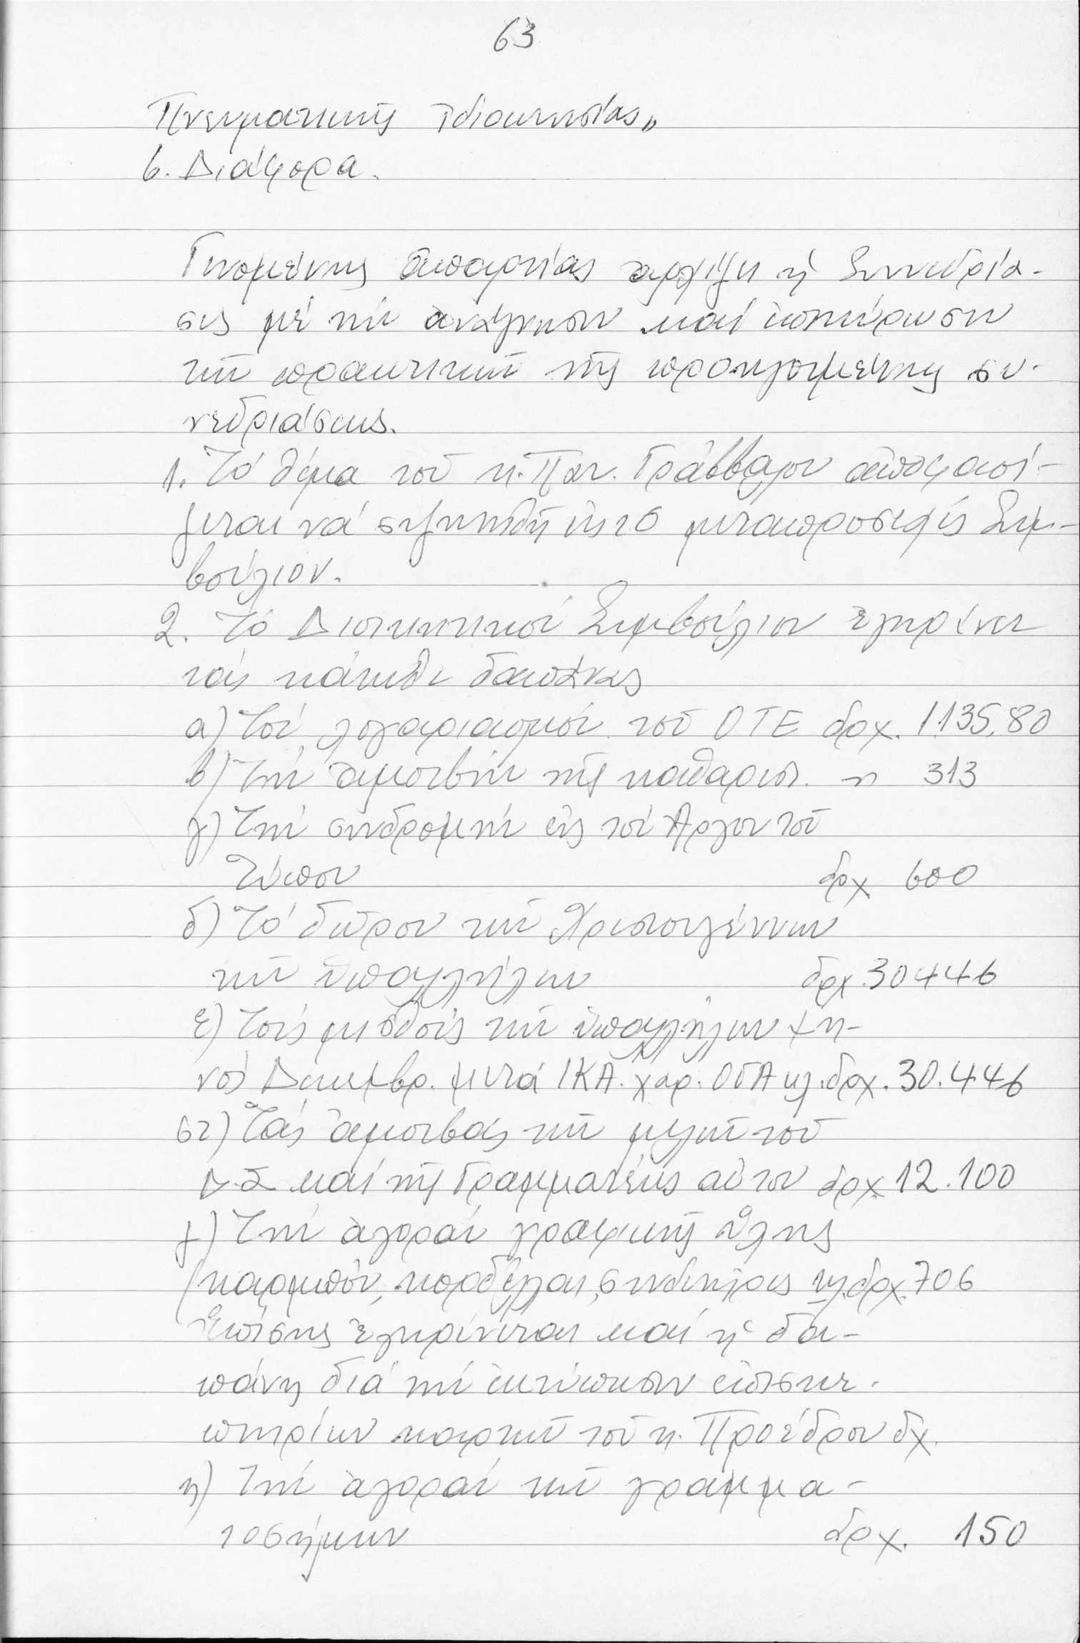 63
Πνευματικῆς Ἰδιοκτησίας"
6. Διάφορα.
Γενομένης ἀπαρτίας ἀρχίζει ἡ Συνεδρία-
σις μέ τήν ἀνάγνωσιν καί ἐπικύρωσιν
τῶν πρακτικῶν τῆς προηγουμένης συ-
νεδριάσεως.
1. Τό θέμα τοῦ κ. Παν. ἀποφασί-
ζεται νά συζητηθῆ εἰς τό μεταπροσεχές Συμ-
βούλιον.
2. Τό Διοικητικόν Συμβούλιον ἐγκρίνει
τάς κάτωθι δαπάνας
α) Τόν λογαριασμόν τοῦ ΟΤΕ δρχ. 1135.80
β) Τήν ἀμοιβήν τῆς καθαριστ. " 313
γ) Τήν συνδρομήν εἰς τόν Ἀργον τοῦ
Τύπου δρχ 600
δ) Τό δῶρον τῶν Χριστουγέννων
τῶν ὑπαλλήλων δρχ. 30446
ε) Τούς μισθούς τῶν ὑπαλλήλων μη-
νός Δεκεμβρ. μετά ΙΚΑ. χαρ. ΟΓΑ κλ. δρχ. 30.446
στ) Τάς ἀμοιβάς τῶν μελῶν τοῦ
Δ.Σ καί τῆς Γραμματέως αὐτοῦ δρχ 12.100
ζ) Τήν ἀγοράν γραφικῆς ὕλης
(καρμπόν, κορδέλλαι, συνδετῆρες κλ. δρχ. 706
Ἐπίσης ἐγκρίνεται καί ἡ δα-
πάνη διά τήν ἐκτύπωσιν ἐπισκε-
πτηρίων καρτῶν τοῦ κ. Προέδρου δχ.
η) Τήν ἀγοράν τῶν γραμμα-
τοσήμων δρχ. 150